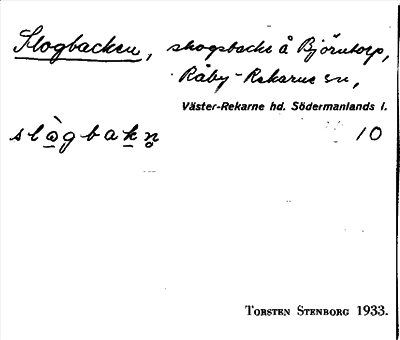 Slogbacken, skogsbacke å Björntorp,
Råby-Rekarne sn,
Väster-Rekarne hd. Södermanlands l.
slògbakn 10
Torsten Stenborg 1933.